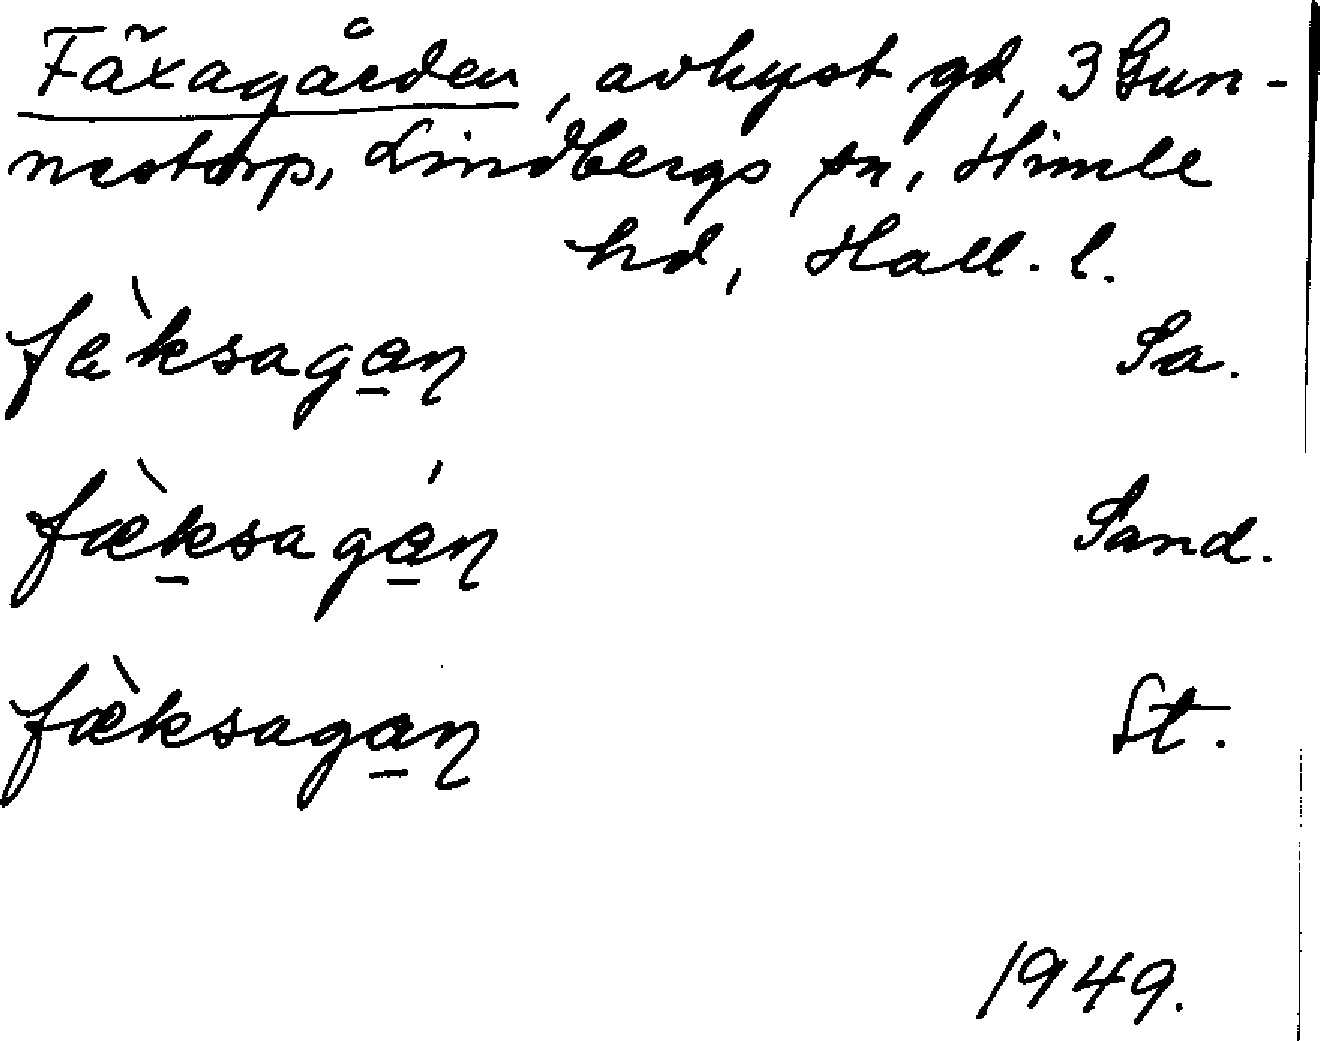 Fäxagården, avhyst gd, 3 Gun-
nestorp, Lindbergs sn, Himle
hd, Hall. l.
fæ̀ksagan Sa.
fæ̀ksagán Sand.
fæ̀ksagan St.
1949.